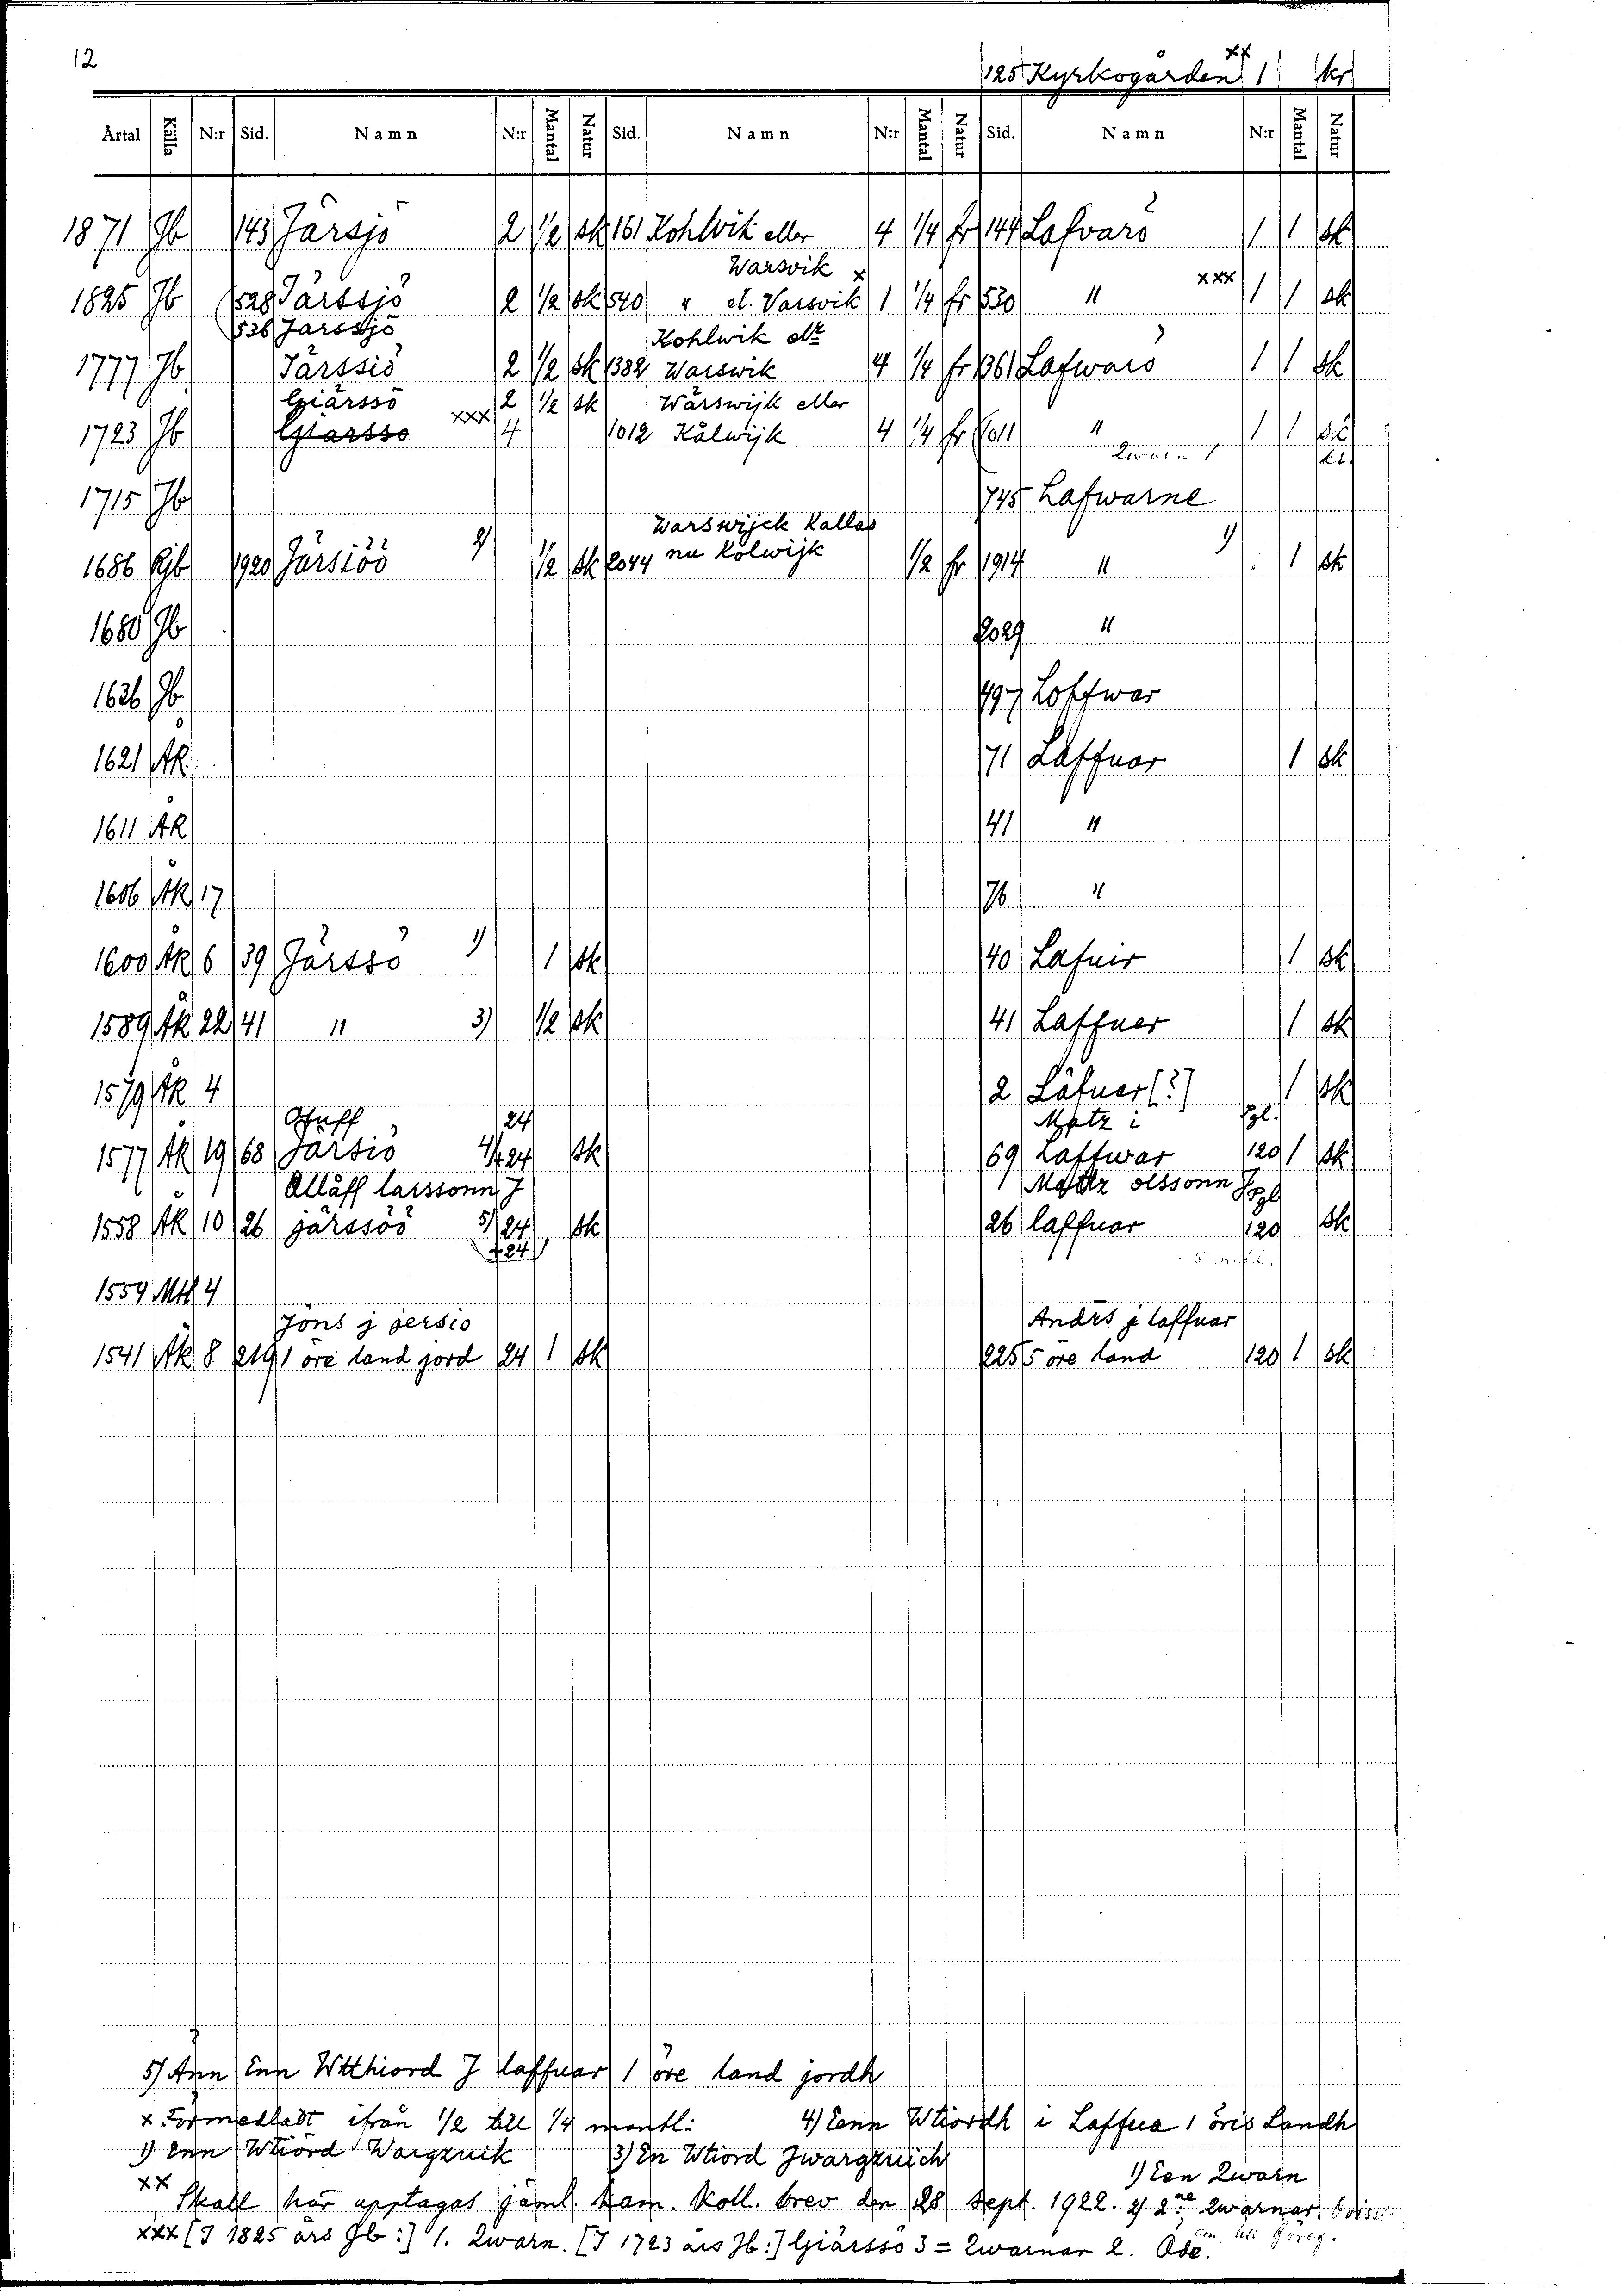 12
125 Kyrkogården xx 1 kr
Årtal Källa N:r Sid. Namn N:r Mantal Natur Sid. Namn N:r Mantal Natur Sid. Namn N:r Mantal Natur
1871 Jb 143 Järsjö 2 1/2 sk 161 Kohlvik eller 4 1/4 fr 144 Lafvarö 1 1 sk
Warsvik x
1825 Jb 528 Järssjö 2 1/2 sk 540 " el. Varsvik 1 1/4 fr 530 " xxx 1 1 sk
528 Järssjö Kohlwik elr
1777 Jb Järssiö 2 1/2 sk 1382 Warswik 4 1/4 fr 1361 Lafwarö 1 1 sk
Giärssö 2 1/2 sk Wårswijk eller
1723 Jb Giärssö xxx 4 1012 Kålwijk 4 1/4 fr 1011 " 1 1 sk
Qwarn 1
1715 Jb 745 Lafwarne
Warswijck Kallas
1686 Jb 1920 Järsiöö 2) 1/2 sk 2044 nu Kolwijk 1/2 fr 1914 " 1) 1 sk
1680 Jb 2029 "
1626 Jb 497 Loffwar
1621 ÅK 71 Laffuar 1 sk
1611 ÅK 41 "
1606 ÅK 17 76 "
1600 ÅK 6 39 Järssö 1) 1 sk 40 Lafuir 1 sk
1589 ÅK 22 41 " 3) 1/2 sk 41 Laffuer 1 sk
1579 ÅK 4 2 Låfuar [?] 1 sk
Oluff 24 Matz i pgl.
1577 ÅK 19 68 Järsiö 4) +24 sk 69 Laffwar 120 1 sk
Ollåff larssonn J Mattz olssonn J pgl
1558 ÅK 10 26 järssöö 5) 24 sk 26 laffuar 120 sk
+24
1554 Mtl 4
Jöns j jersiö Andrs j laffuar
1541 ÅK 8 219 1 öre land jord 24 1 sk 225 5 öre land 120 1 sk
5) Ann Enn Wtthiord J laffuar 1 öre land jordh
x Förmedladt ifrån 1/2 till 1/4 mantl: 4) Eenn Wtiordh i Laffua 1 öris Landh
1) Enn Wtiord Wargzuik 3) En Wtiord Jwargzuich
1) Een Qwarn
xx Skall här upptagas jäml. Kam. Koll. brev den 28 sept. 1922. 2) 2ne qwarnar
xxx [I 1825 års Jb:] 1. Qwarn. [I 1723 års Jb:] Giärssö 3 = Qwarnar 2. Öde.